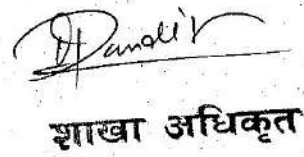 Pandit
शाखा अधिकृत